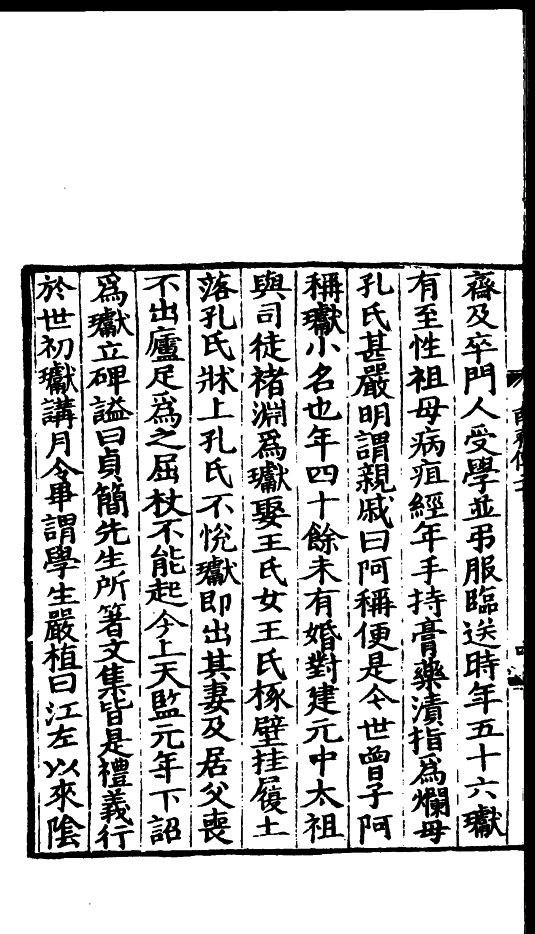 齋及卒門人受學並弔服臨送時年五十六瓛
有至性祖母病疽經年手持膏藥漬指爲爛母
孔氏甚嚴明謂親戚曰阿稱便是今世曾子阿
稱瓛小名也年四十餘未有婚對建元中太祖
與司徒褚淵爲瓛娶王氏女王氏椓壁挂履土
落孔氏牀上孔氏不恱瓛即出其妻及居父喪
不出廬足爲之屈杖不能起今上天監元年下詔
爲瓛立碑謚曰貞簡先生所著文集皆是禮義行
於世初瓛講月令畢謂學生嚴植曰江左以來陰